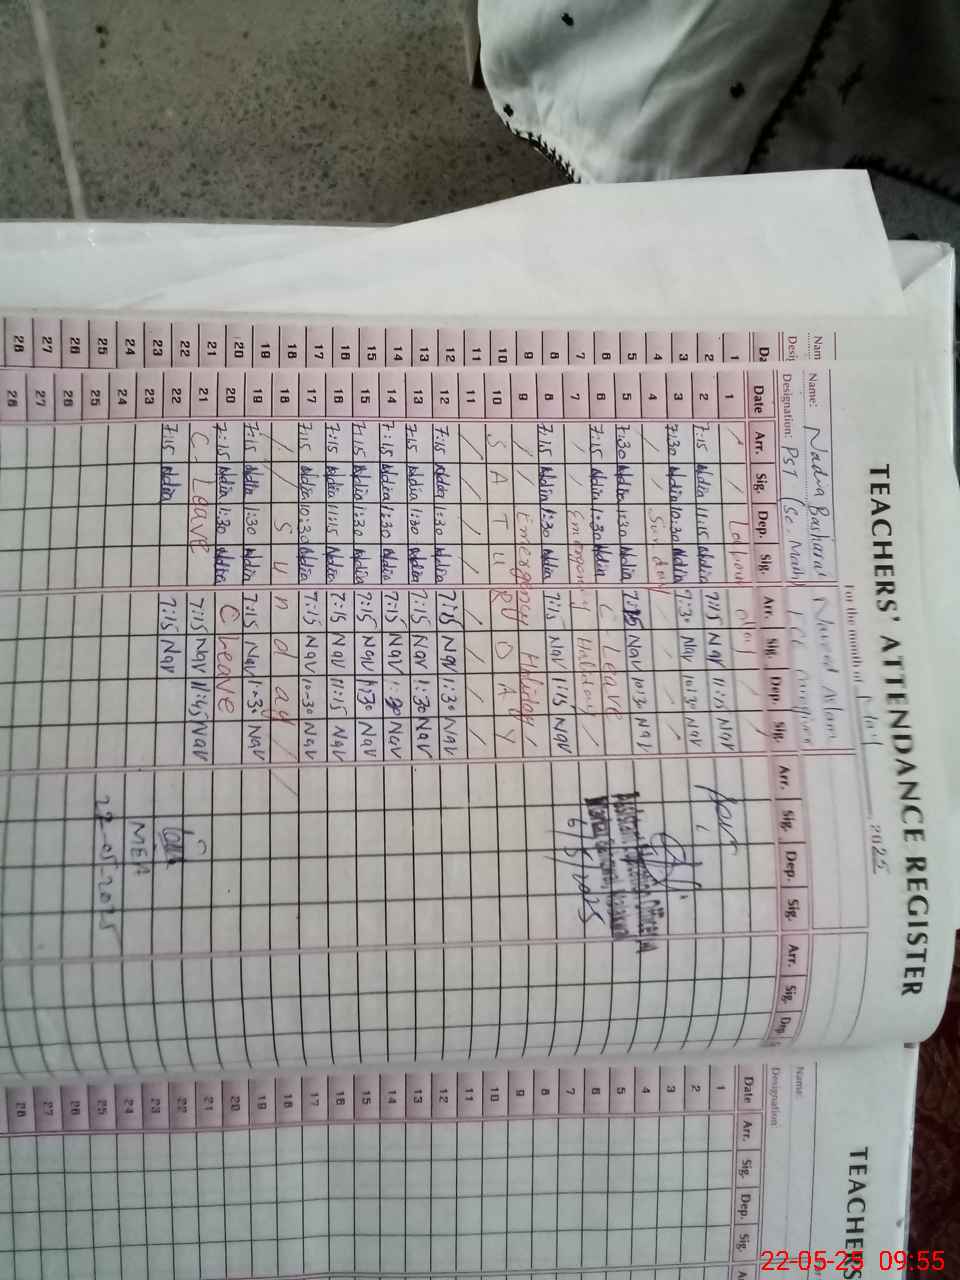 TEACHERS' ATTENDANCE REGISTER
For the month of May 2025
Name: Nadia Basharat Naveed Alam
Designation: PST (Sc. Math)
Date Arr. Sig. Dep. Sig. Arr. Sig. Dep. Sig. Arr. Sig. Dep. Sig. Arr. Sig. Dep.
1 / / Labour day / /
2 7:15 Nadia 11:15 Nadia 7:15 Nav 11:15 Nav
3 7:30 Nadia 10:30 Nadia 7:30 Nav 10:30 Nav
4 / / Sunday / / /
5 7:30 Nadia 1:30 Nadia 7:15 Nav 10:30 Nav
6 7:15 Nadia 1:30 Nadia C-Leave
7 / / Emergency Holiday /
8 7:15 Nadia 1:30 Nadia 7:15 Nav 11:15 Nav
6/5/2025
9 / / Emergency Holiday /
10 S A T U R D A Y
11 / / / / / / / /
12 7:15 Nadia 1:30 Nadia 7:15 Nav 1:30 Nav
13 7:15 Nadia 1:30 Nadia 7:15 Nav 1:30 Nav
14 7:15 Nadia 1:30 Nadia 7:15 Nav 1:30 Nav
15 7:15 Nadia 1:30 Nadia 7:15 Nav 1:30 Nav
16 7:15 Nadia 11:15 Nadia 7:15 Nav 11:15 Nav
17 7:15 Nadia 10:30 Nadia 7:15 Nav 10-30 Nav
18 / / S u n d a y /
19 7:15 Nadia 1:30 Nadia 7:15 Nav 1-30 Nav
20 7:15 Nadia 1:30 Nadia C Leave
21 C-Leave 7:15 Nav 11:45 Nav
22 7:15 Nadia 7:15 Nav
23 MEA
24
25 22-05-2025
26
27
28
TEACHERS
Name:
Designation:
Date Arr. Sig. Dep. Sig.
1
2
3
4
5
6
7
8
9
10
11
12
13
14
15
16
17
18
19
20
21
22
23
24
25
26
27
28
22-05-25 09:55